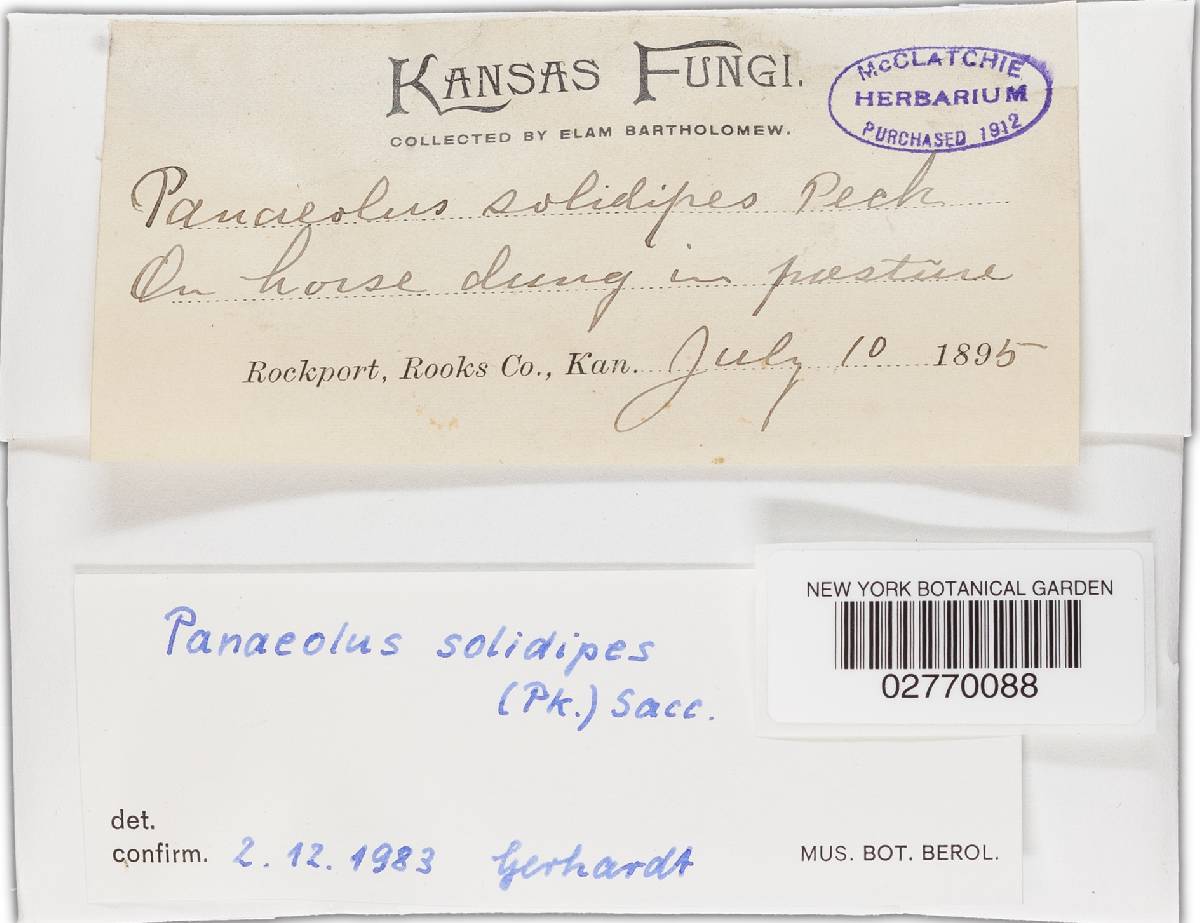 KANSAS FUNGI.
COLLECTED BY ELAM BARTHOLOMEW.
McCLATCHIE
HERBARIUM
PURCHASED 1912
Panaeolus solidipes Peck
On horse dung in pasture
Rockport, Rooks Co., Kan. July 10 1895
NEW YORK BOTANICAL GARDEN
02770088
Panaeolus solidipes
(Pk.) Sacc.
det.
confirm. 2.12.1983 Gerhardt
MUS. BOT. BEROL.